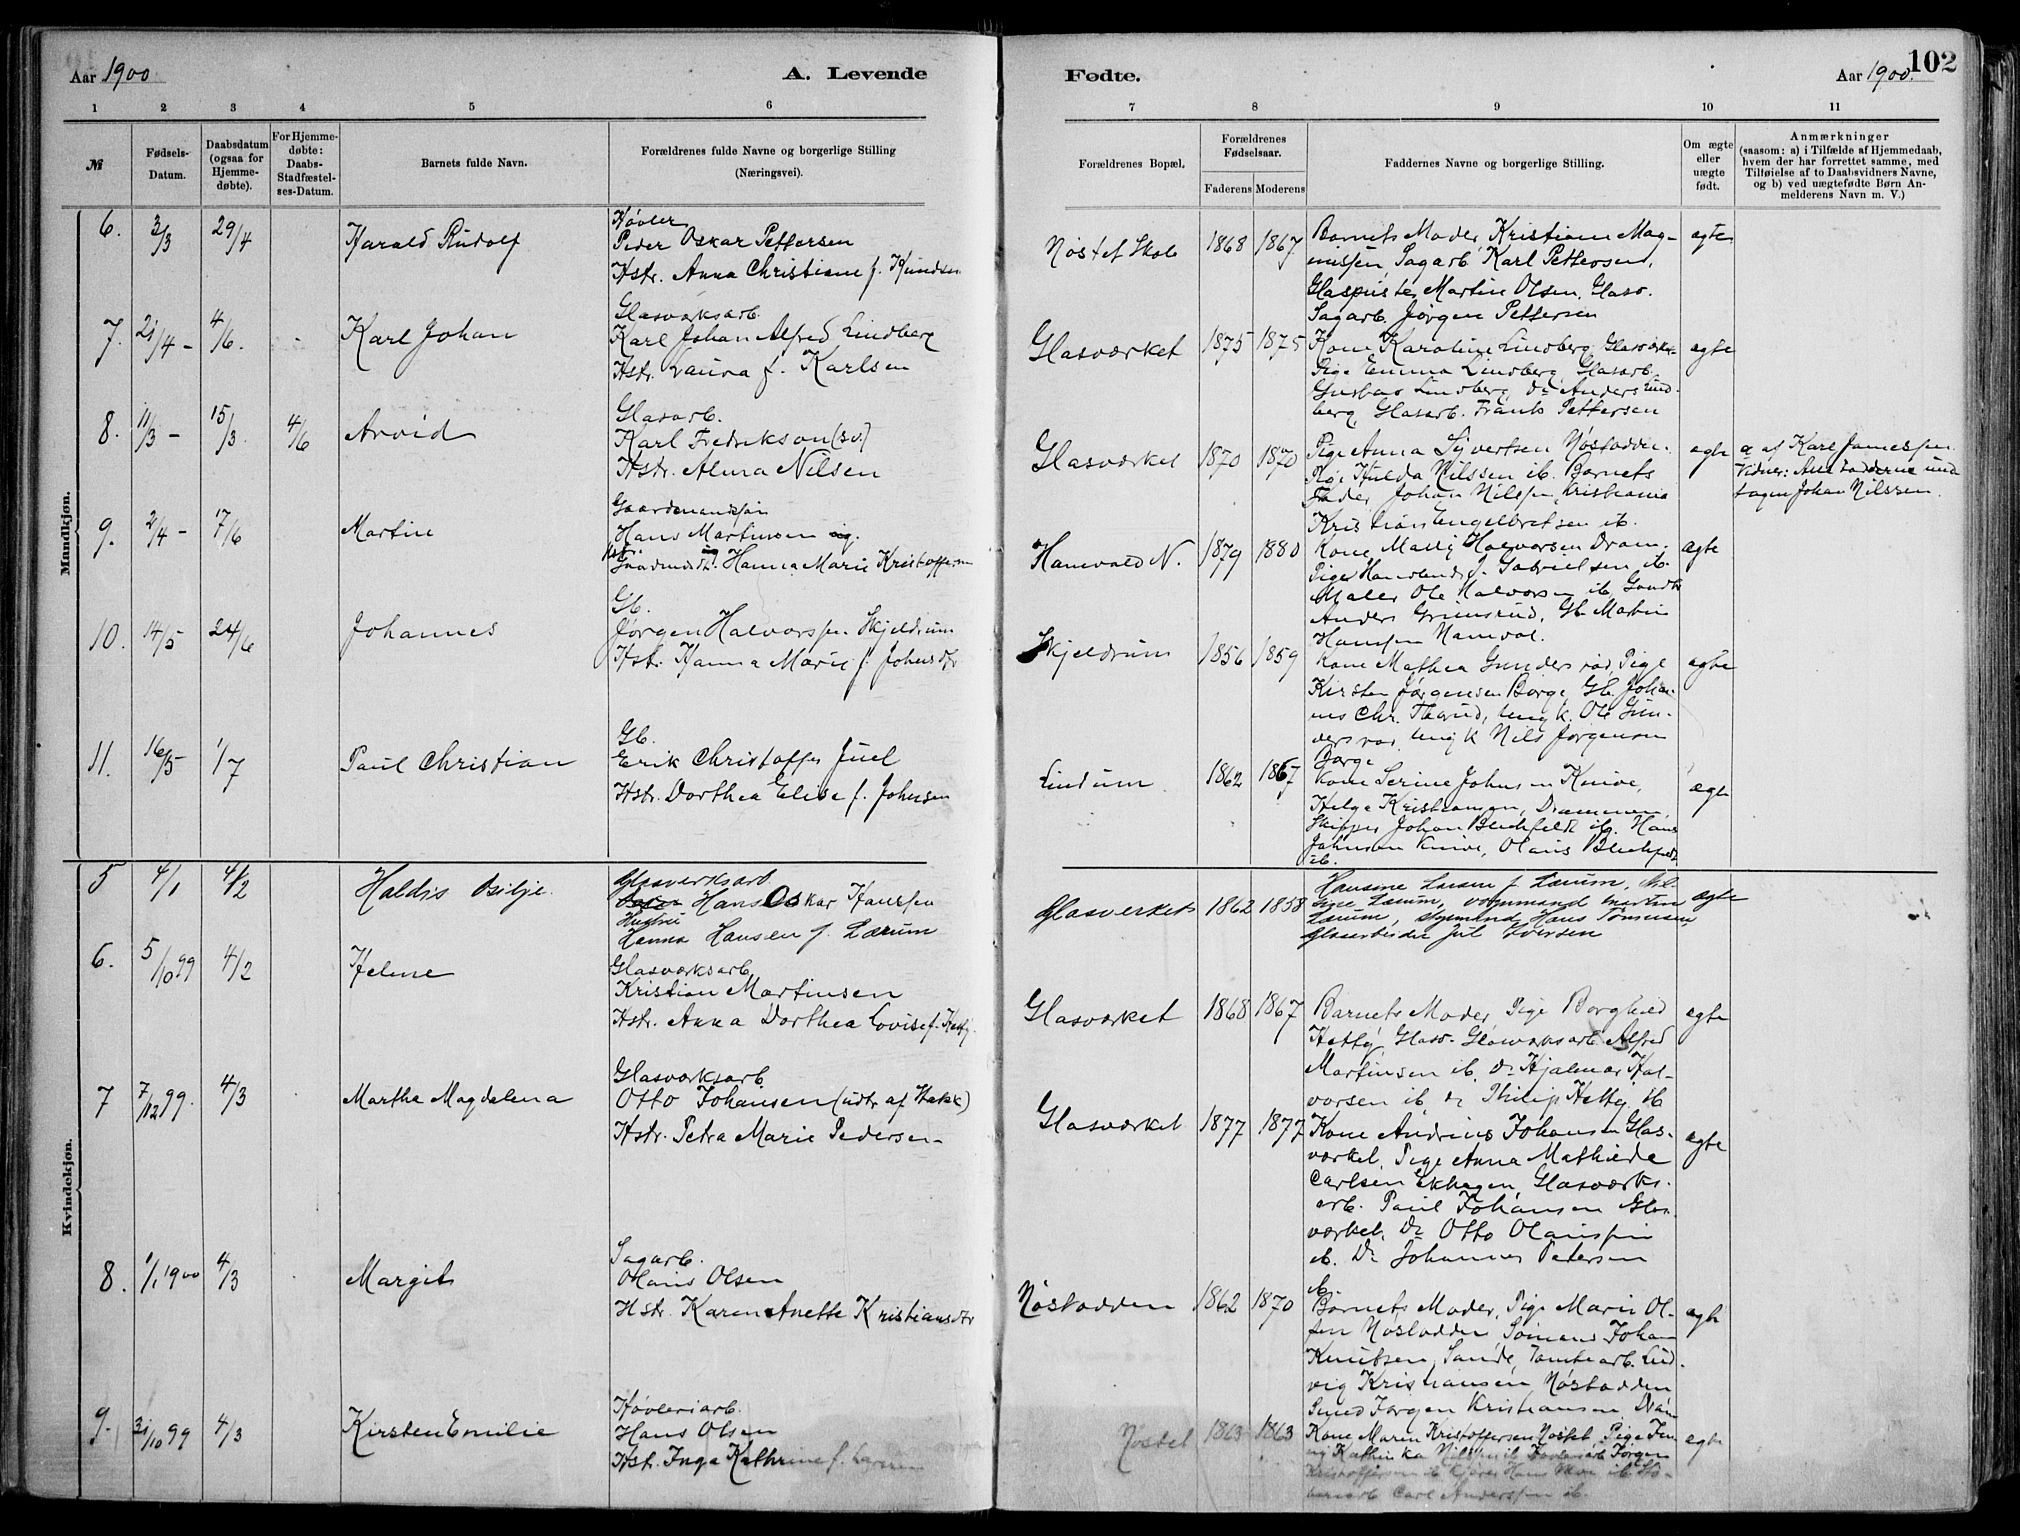 Aar 1900
A. Levende
1 2 3 4 5 6
№
Fødsels-
Datum.
Daabsdatum
(ogsaa for
Hjemme-
døbte).
For Hjemme-
døbte:
Daabs-
Stadfæstel-
ses-Datum.
Barnets fulde Navn.
Forældrenes fulde Navne og borgerlige Stilling
(Næringsvei).
Mandkjøn.
6. 3/3 29/4 Harald Rudolf
Høvler
Peder Oskar Pettersen
Hstr. Anna Christiane f. Knudsen
7. 21/4 - 4/6. Karl Johan
Glasværksarb.
Karl Johan Alfred Lindberg
Hstr. Laura f. Karlsen
8. 11/3 - 15/3 4/6 Arvid
Glasarb.
Karl Fredrikson (sv.)
Hstr. Alma Nilsen
9. 2/4 - 17/6 Martin
Gaardmandssøn
Hans Martinsen og
Hanna Marie Kristoffersen
10. 14/5 24/6 Johannes
Gb.
Jørgen Halvorssen Skjeldrum
Hstr. Hanna Marie f. Johnsdtr
11. 16/5 1/7 Paul Christian
Gb.
Erik Christoffer Juel
Hstr. Dorthea Elise f. Johnsen
Kvindekjøn.
5 4/1 4/2 Haldis
Glasverksarb
Hans Oskar Hanssen
Hustru
Hanna Hansen f. Lærum
6. 5/10 99 4/2 Helene
Glasværksarb.
Kristian Martinsen
Hstr. Anna Dorthea Lovise f. Hetty
7 7/12 99. 4/3 Martha Magdalena
Glasværksarb.
Otto Johansen (udtr af Stskk)
Hstr. Petra Marie Pedersen
8. 1/1 1900 4/3 Margit
Sagarb.
Olaus Olsen
Hstr. Karen Anette Kristiansdtr
9. 31/10 99 4/3 Kirsten Emilie
Høvleriarb.
Hans Olsen
Hstr. Inga Kathrine f. Larsen
Fødte.
Aar 1900.
102
7 8 9 10 11
Forældrenes Bopæl.
Forældrenes
Fødselsaar.
Faderens Moderens
Faddernes Navne og borgerlige Stilling.
Om ægte
eller
uægte
født.
Anmærkninger
(saasom: a) i Tilfælde af Hjemmedaab,
hvem der har forrettet samme, med
Tilføielse af to Daabsvidners Navne,
og b) ved uægtefødte Børn An-
melderens Navn m. V.)
Nøstet Skole 1868 1867 ægte
Barnets Moder, Kristiane Mag-
nussen Sagarb. Karl Pettersen,
Glaspuster Martin Olsen, Glasv.
Sagarb. Jørgen Pettersen
Glasværket 1875 1875 ægte
Kone Karoline Lindberg Glasværket
Pige Emma Lindberg Glasarb.
Gustav Lindberg, Do Anders Lind-
berg, Glasarb. Frants Pettersen
Glasværket 1870 1870 ægte
Pige Anna Syvertsen Nøstodden
Pige Hulda Nilssen ib. Barnets
Fader, Johan Nilssen, Kristiania
Kristian Engelbretsen ib.
a af Karl Jamessen
Vidner: Alle Fadderne und-
tagen Johan Nilssen.
Hamvald N. 1879 1880 ægte
Kone Mally Halvorsen Dram.
Maler Ole Halvorsen ib,
Anders Grimsrud, Gb. Martin
Hansen Hamval.
Skjeldrum 1856 1859 ægte
Kone Mathea Gundersrød, Pige
Kirsten Jørgensen Borge Gb. Johan-
nes Chr. Therud, Ungk. Ole Gun-
dersrød, Ungk Nils Jørgensen
Borge
Lindum 1862 1867 ægte
Kone Serine Johnsen Knive,
Helga Kristiansen, Drammen
Skipper Johan Blichfeldt ib. Hans
Johnsen Knive, Olaus Blichfeldt
ib.
Glasverket 1862 1858 ægte
Hansine Larsen f Lærum,
Lærum, Hans
Glasarbeider Jul Iversen
Glasværket 1868 1867 ægte
Barnets Moder, Pige Borghild
Hetty, Glasv. Glasværksarb. Alfred
Martinsen ib, Do Hjalmar Hal-
vorsen ib, Do Philip Hetty ib
Glasværket 1877 1877 ægte
Kone Andrine Johansen Glas-
værket, Pige Anna Mathilde
Carlsen Ekhagen, Glasværks-
arb. Paul Johansen Glas-
værket, Do Otto Olaussen
ib. Do Johannes Petersen
ib.
Nøstodden 1862 1870 ægte
Barnets Moder, Pige Marie Ol-
sen Nøstodden Sømand Johan
Knutsen, Sande, Tomtearb. Lud-
vig Kristiansen Nøstodden
Smed Jørgen Kristiansen Dram
Nøstet 1863 1863 ægte
Kone Maren Kristoffersen Nøstet Pige Jen-
ny Kathinka Nilsen ib Jørgen
Kristoffersen ib Kjører Hans ib
Carl Anderssen ib.